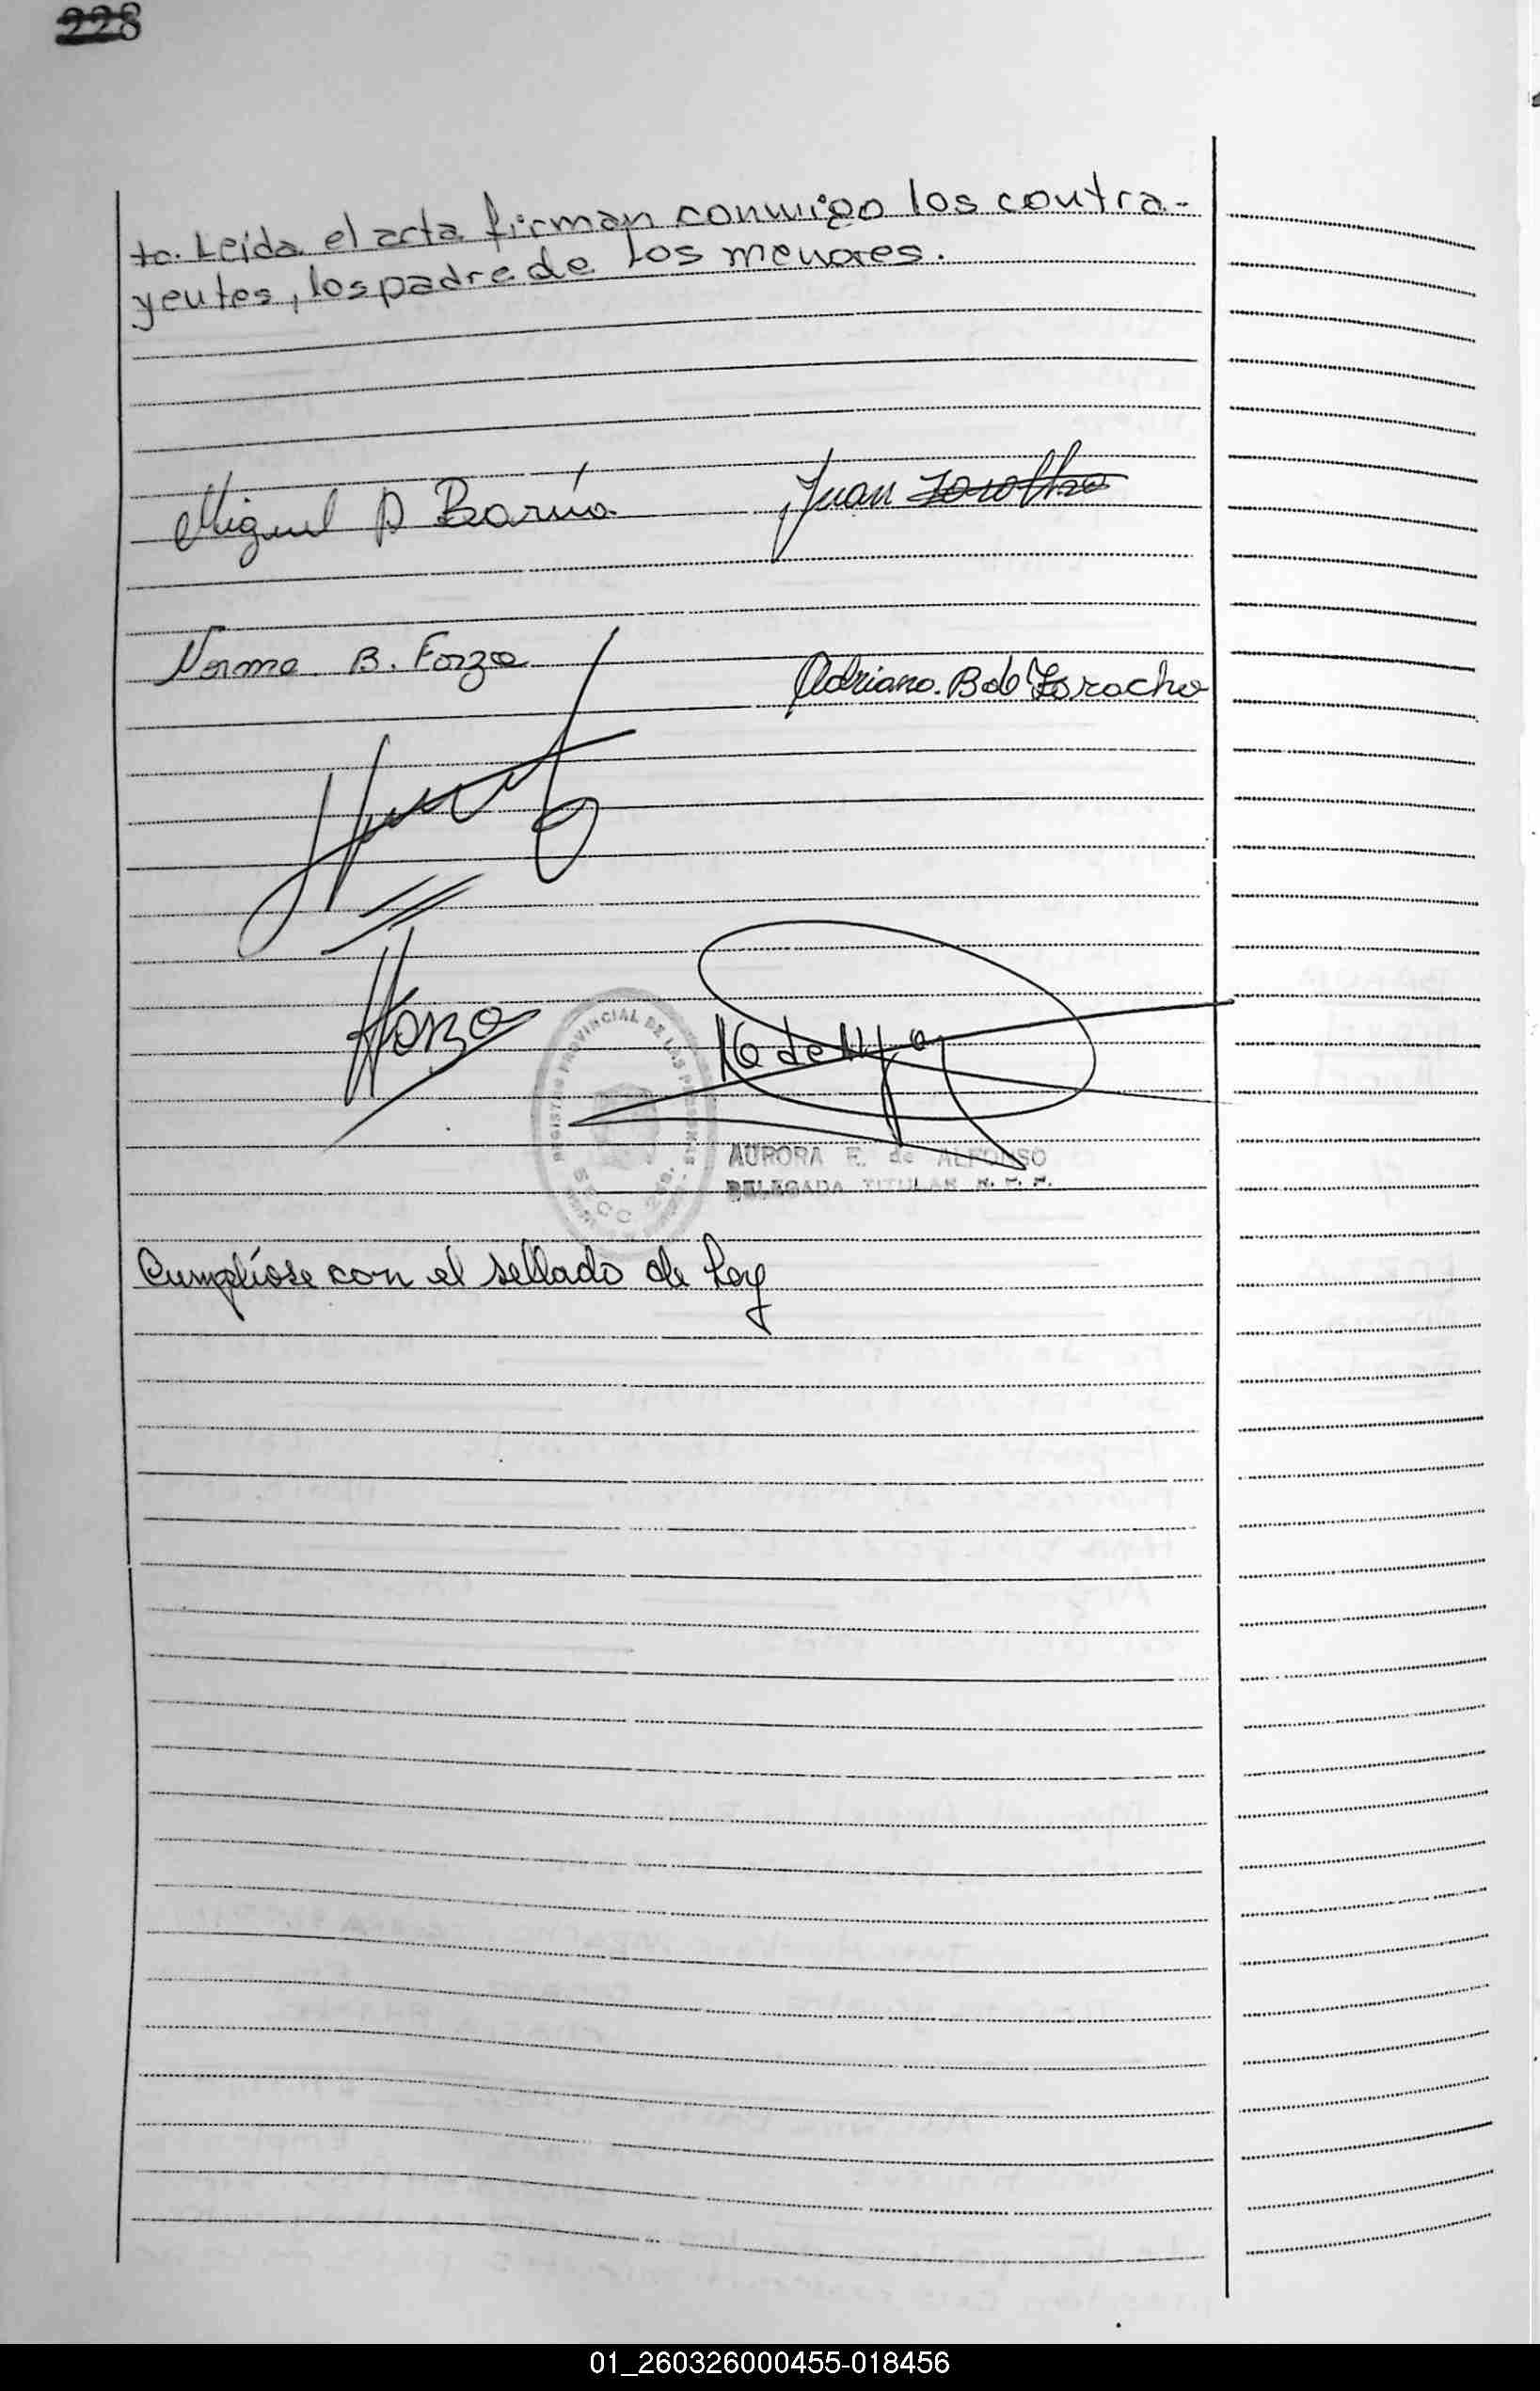 228
to. Leída el acta firman conmigo los contra-
yentes, los padre de los menores.
Miguel A Barúa
Juan
Norma B. Forzo
Adriano. B de Zoracho
Forzo
REGISTRO PROVINCIAL DE LAS PERSONAS
SECC
AURORA E. de ALFONSO
DELEGADA TITULAR R. P. P.
Cumplióse con el sellado de Ley
01_260326000455-018456